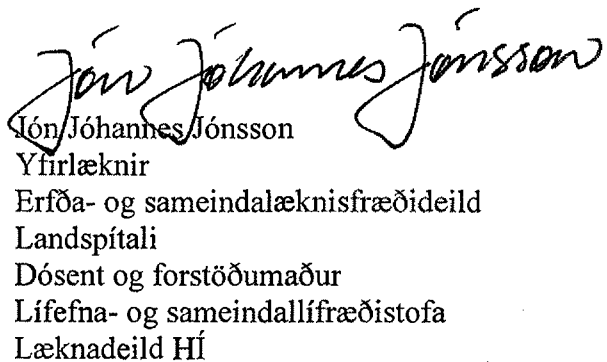 Jón Jóhannes Jónsson
Jón Jóhannes Jónsson
Yfirlæknir
Erfða- og sameindalæknisfræðideild
Landspítali
Dósent og forstöðumaður
Lífefna- og sameindallífræðistofa
Læknadeild HÍ